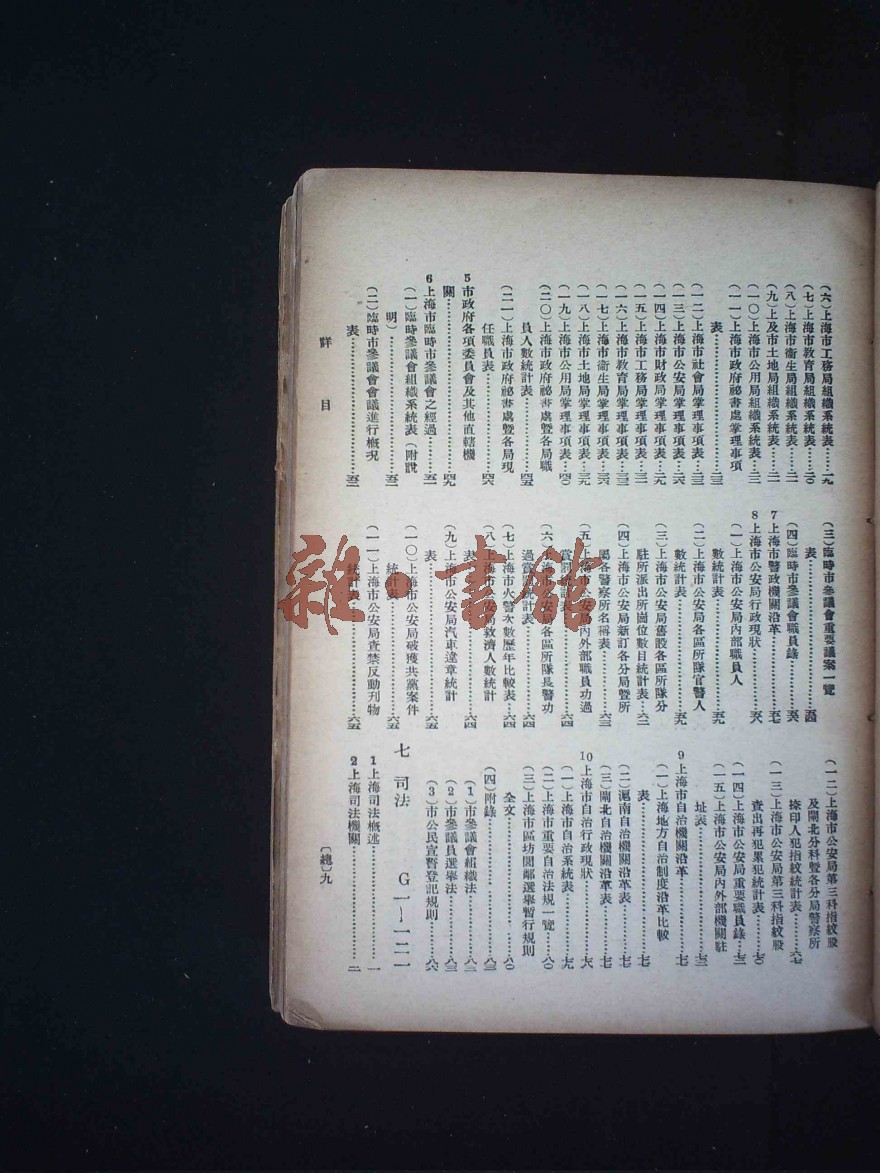 (六)上海市工務局組織系統表……一九
(七)上海市教育局組織系統表……二〇
(八)上海市衛生局組織系統表……二一
(九)上及市土地局組織系統表……二一
(一〇)上海市公用局組織系統表……二三
(一一)上海市政府祕書處掌理事項
表……二三
(一二)上海市社會局掌理事項表……二三
(一三)上海市公安局掌理事項表……二六
(一四)上海市財政局掌理事項表……二六
(一五)上海市工務局掌理事項表……二九
(一六)上海市教育局掌理事項表……三三
(一七)上海市衛生局掌理事項表……三六
(一八)上海市土地局掌理事項表……三九
(一九)上海市公用局掌理事項表……四〇
(二〇)上海市政府祕書處暨各局職
員人數統計表……四五
(二一)上海市政府祕書處暨各局現
任職員表……四六
5市政府各項委員會及其他直轄機
關……四九
6上海市臨時市參議會之經過……五一
(一)臨時參議會組織系統表(附說
明)……五二
(二)臨時市參議會會議進行概況
表……五二
(三)臨時市參議會重要議案一覽
表……五四
(四)臨時市參議會職員錄……五六
7上海市警政機關沿革……五七
8上海市公安局行政現狀……五八
(一)上海市公安局內部職員人
數統計表……五九
(二)上海市公安局各區所隊官警人
數統計表……五九
(三)上海市公安局舊設各區所隊分
駐所派出所崗位數目統計表……六二
(四)上海市公安局新訂各分局暨所
屬各警察所名稱表……六三
(五)上海市公安局內外部職員功過
賞罰統計表……六四
(六)上海市公安局各區所隊長警功
過賞罰統計表……六四
(七)上海市火警次數歷年比較表……六四
(八)上海市公安局救濟人數統計
表……六四
(九)上海市公安局汽車違章統計
表……六五
(一〇)上海市公安局破獲共黨案件
統計表……六五
(一一)上海市公安局查禁反動刊物
統計表……六五
(一二)上海市公安局第三科指紋股
及閘北分科暨各分局警察所
捺印人犯指紋統計表……六七
(一三)上海市公安局第三科指紋股
查出再犯累犯統計表……七〇
(一四)上海市公安局重要職員錄……七二
(一五)上海市公安局內外部機關駐
址表……七三
9上海市自治機關沿革……七七
(一)上海地方自治制度沿革比較
表……七七
(二)滬南自治機關沿革表……七七
(三)閘北自治機關沿革表……七七
10上海市自治行政現狀……七八
(一)上海市自治系統表……七九
(二)上海市重要自治法規一覽……八〇
(三)上海市區坊閭鄰選舉暫行規則
全文……八〇
(四)附錄……八三
(1)市參議會組織法……八三
(2)市參議員選舉法……八三
(3)市公民宣誓登記規則……八六
七 司法 G一—一二一
1上海司法概述……一
2上海司法機關……二
詳目
〔總〕九
雜·書館